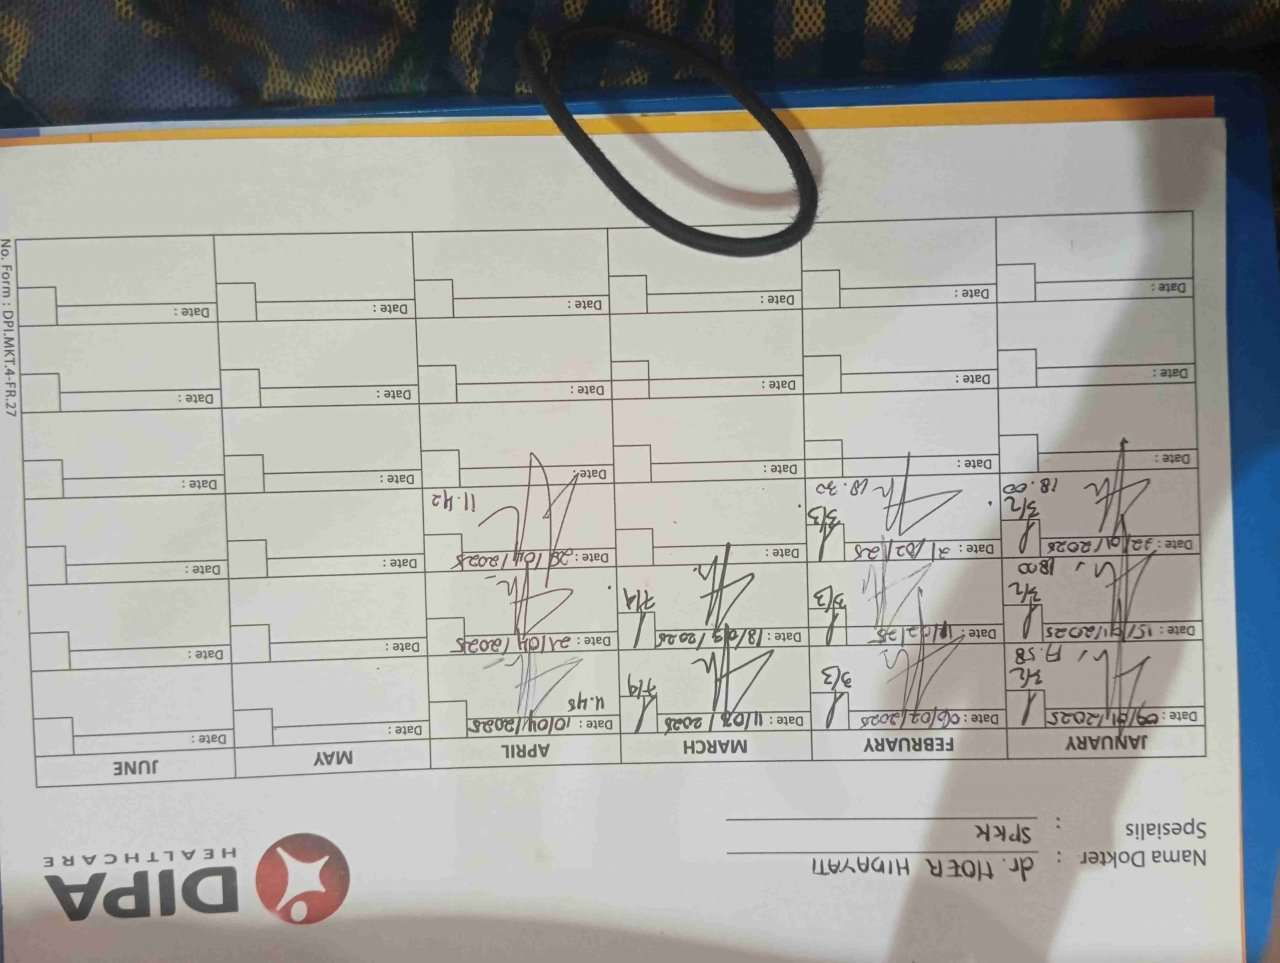 DIPA
HEALTHCARE
Nama Dokter : dr. HOER HIDAYATI
Spesialis : SPKK
JANUARY FEBRUARY MARCH APRIL MAY JUNE
Date: 09/01/2025 Date: 06/02/2025 Date: 11/03/2025 Date: 10/04/2025 Date: Date:
3/2 3/3 7/4
17.58
Date: 15/01/2025 Date: Date: 18/03/2025 Date: 21/04/2025 Date: Date:
3/2 3/3 7/4
1800
Date: 22/01/2025 Date: 21/02/25 Date: Date: 28/04/2025 Date: Date:
3/2 3/3
18.00 18.30 11.42
Date: Date: Date: Date: Date: Date:
Date: Date: Date: Date: Date: Date:
Date: Date: Date: Date: Date: Date:
No. Form : DPI.MKT.4-FR.27